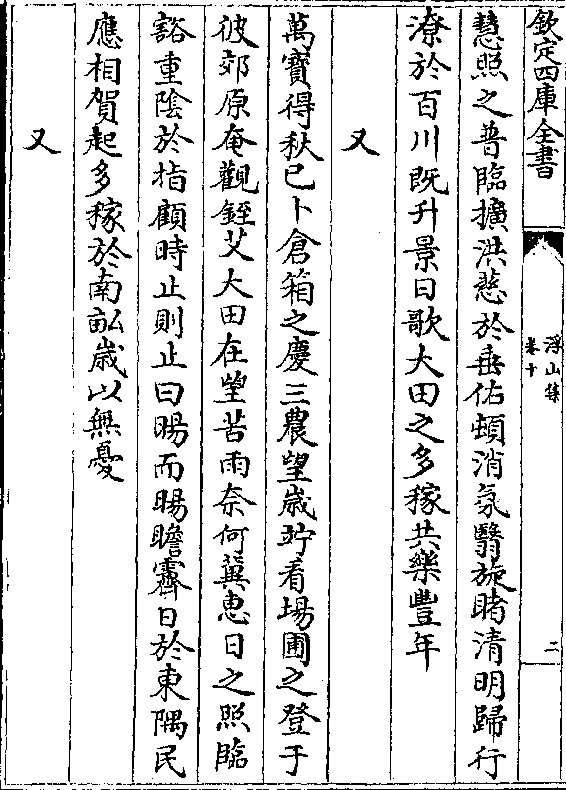 欽定四庫全書
浮山集
卷十
二
慧照之普臨擴洪慈於垂佑頓消氛翳旋睹清明歸行
潦於百川既升景日歌大田之多稼共樂豐年
又
萬寶得秋已卜倉箱之慶三農望歳竚看場圃之登于
彼郊原奄觀銍艾大田在望苦雨奈何冀惠日之照臨
豁重陰於指顧時止則止曰暘而暘瞻霽日於東隅民
應相賀起多稼於南畆歳以無憂
又